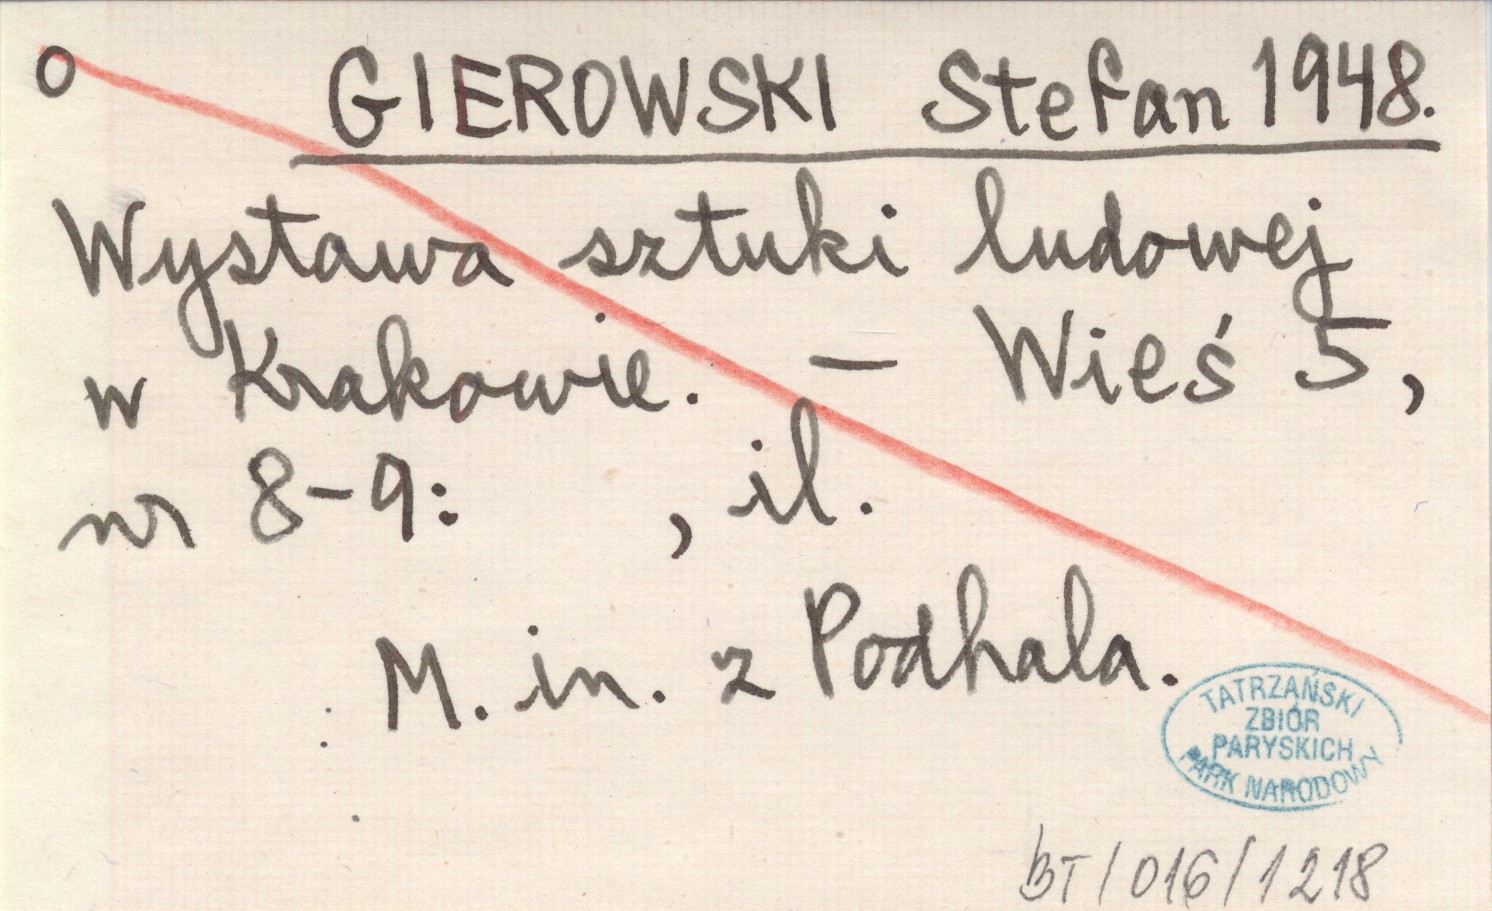 O GIEROWSKI Stefan 1948.
Wystawa sztuki ludowej
w Krakowie. – Wieś 5,
nr 8-9: , il.
M. in. z Podhala.
TATRZAŃSKI
ZBIÓR
PARYSKICH
PARK NARODOWY
BT/016/1218